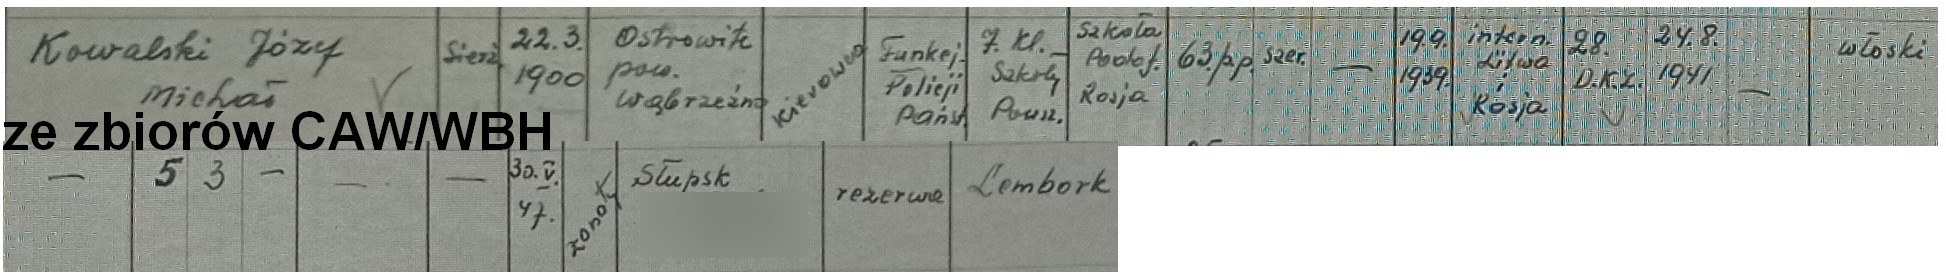 Kowalski Józef
Michał
Sierż.
22.3.
1900
Ostrowite
pow.
Wąbrzeźno
Kierowca
Funkcj.
Policji
Państ.
7. kl.
Szkoły
Pow.
Szkoła
Podof.
Rosja
63.p.p.
szer.
—
19.9.
1939.
intern.
Litwa
i
Rosja
28.
D.K.Z.
24.8.
1941.
—
włoski
ze zbiorów CAW/WBH
—
5
3
—
—
—
30.V.
47.
żonaty
Słupsk
rezerwa
Lembork